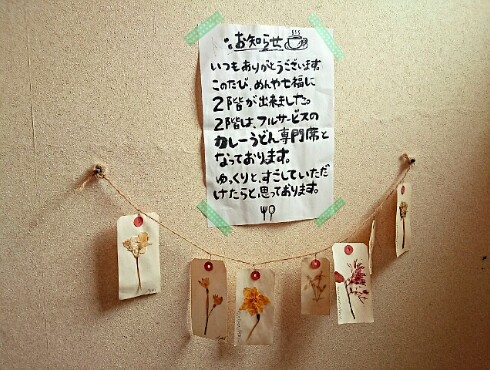 お知らせ
いつもありがとうございます。
このたび、めんや七福に
2階が出来ました。
2階は、フルサービスの
カレーうどん専門席と
なっております。
ゆっくりと、すごしていただ
けたらと思っております。